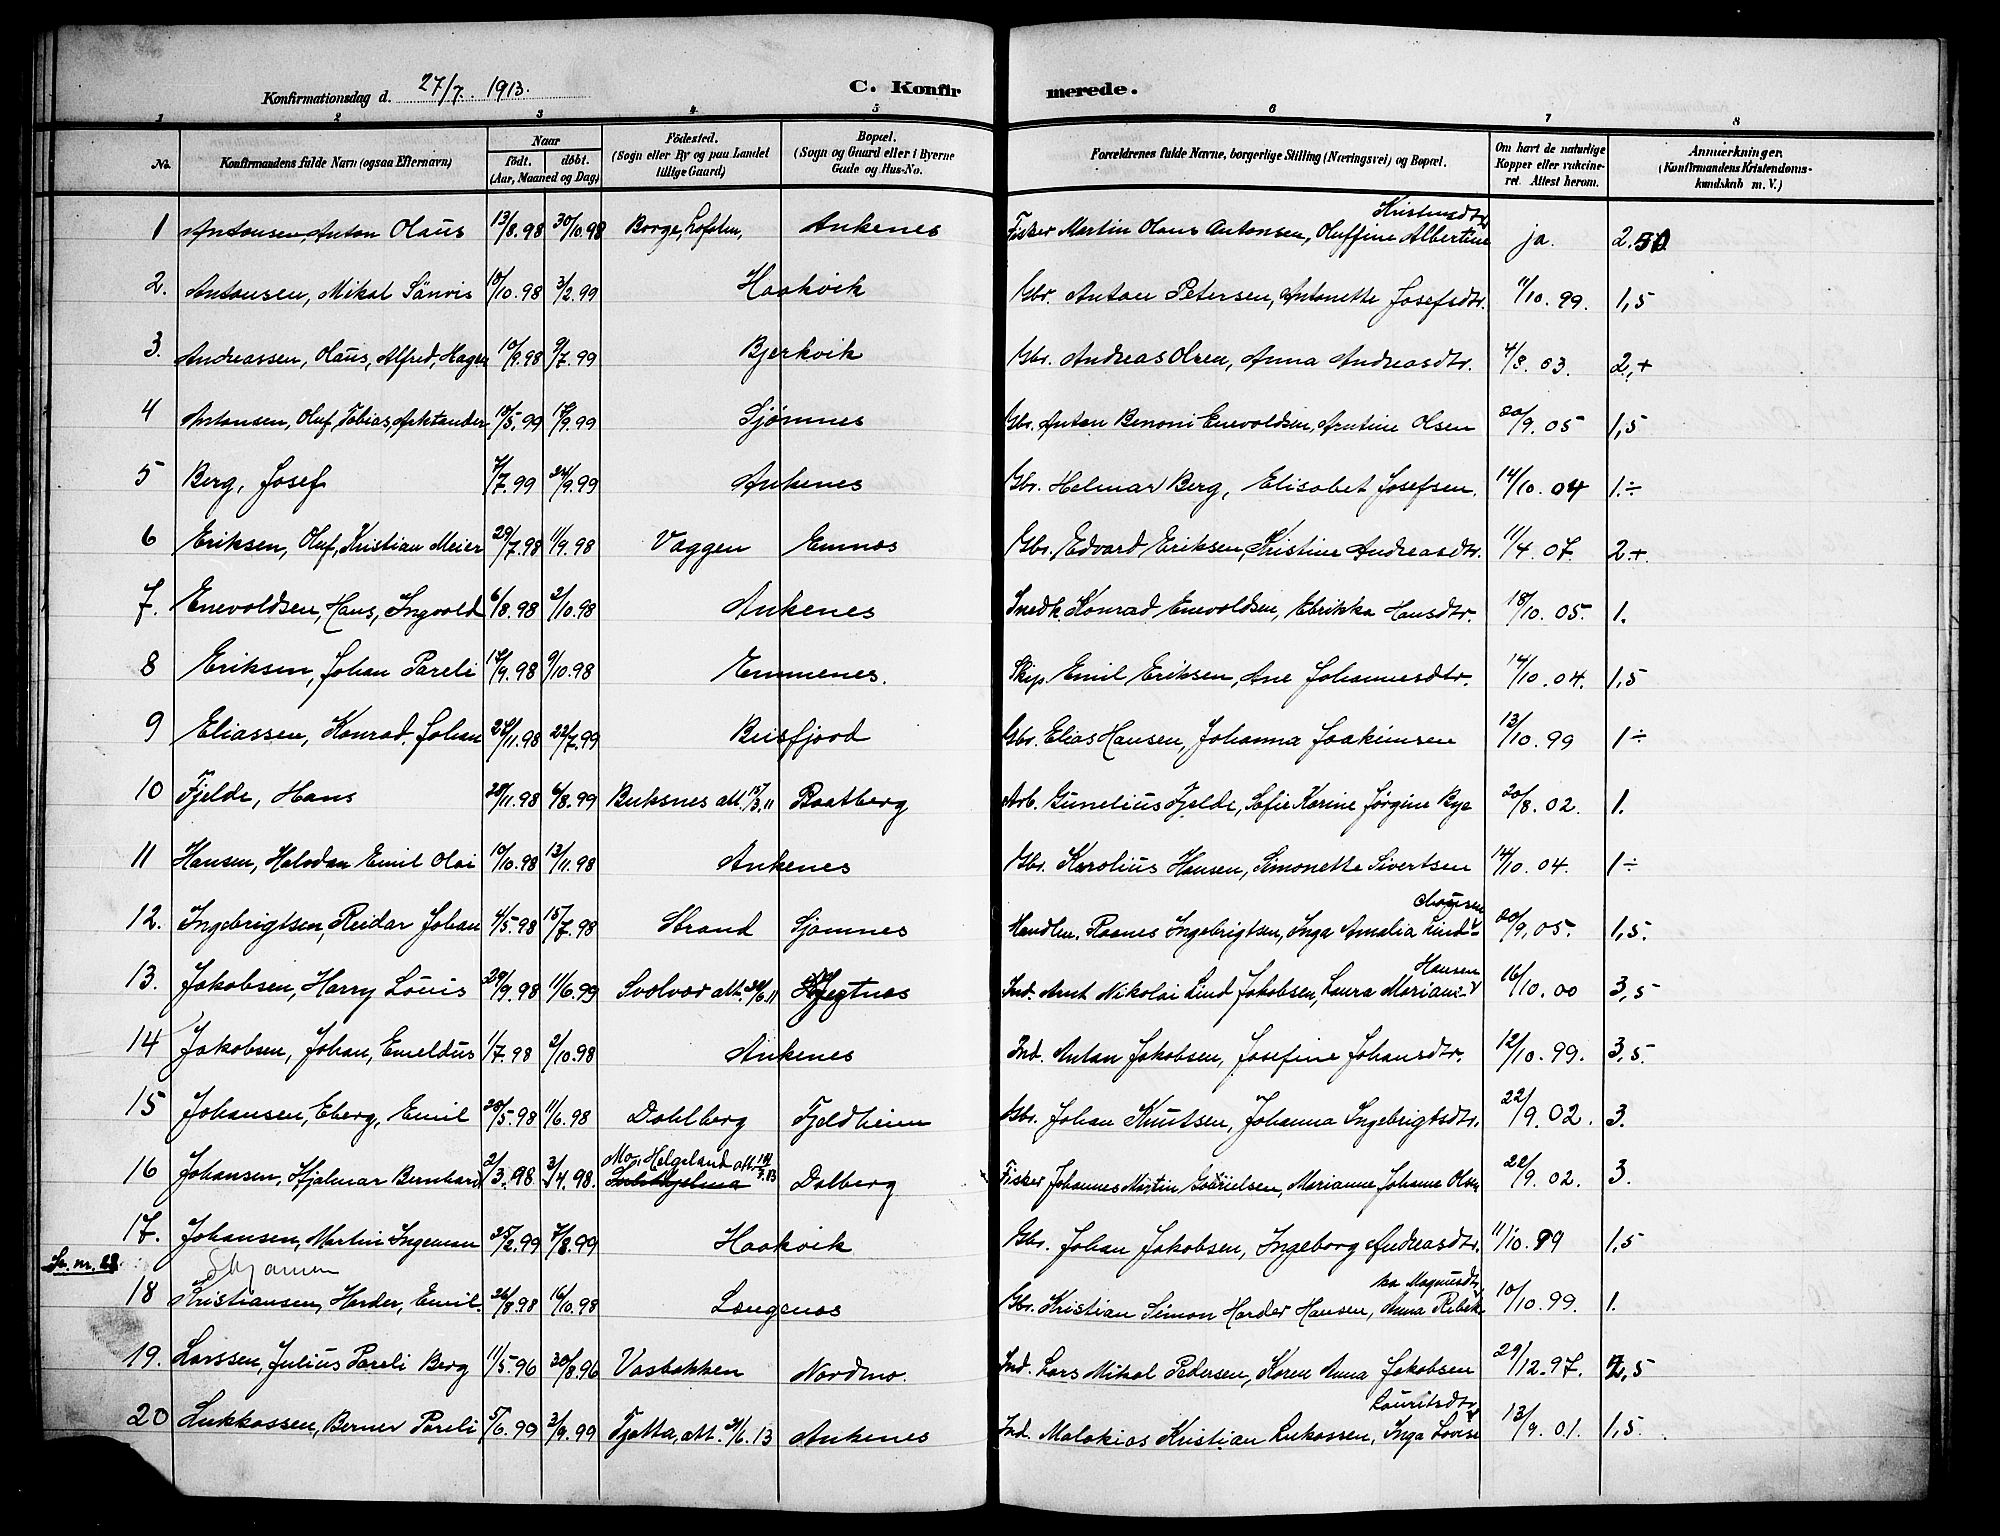 Konfirmationsdag d. 27/7 1913.
C. Konfirmerede.
1 2 3 4 5 6 7 8
No. Konfirmandens fulde Navn (ogsaa Efternavn) Naar født. døbt. (Aar, Maaned og Dag) Födested. (Sogn eller By og paa Landet tillige Gaard) Bopæl. (Sogn og Gaard eller i Byerne Gade og Hus-No. Forældrenes fulde Navne, borgerlige Stilling (Næringsvei) og Bopæl. Om havt de naturlige Kopper eller vaccineret. Attest herom. Anmærkninger. (Konfirmandens Kristendomskundskab m. V.)
1 Antonsen, Anton Olaus 13/8.98 30/10.98 Borge, Lofoten, Ankenes Fisker Martin Olaus Antonsen, Oluffine Albertine Kristensdtr ja. 2.
2. Antonsen, Mikal Sönvis 10/10.98 3/2.99 Haakvik Gbr. Anton Petersen, Antonette Josefsdtr. 11/10.99. 1,5
3. Andreassen, Olaus, Alfred, Hagen 10/9.98 9/7.99 Bjerkvik Gbr. Andreas Olsen, Anna Andreasdtr. 4/8.03. 2,+
4 Antonsen, Oluf, Tobias, Arktander 13/5.99 17/9.99 Sjömnes Gbr. Anton Benoni Enevoldsen, Arntine Olsen 20/9.05 1,5
5 Berg, Josef 7/7.99 24/9.99 Ankenes Gbr. Helmar Berg, Elisabet Josefsen. 14/10.04 1.÷
6 Eriksen, Oluf, Kristian Meier 29/7.98 11/9.98 Vaggen Emnes Gbr. Edvard Eriksen, Kristine Andreasdtr. 11/4.07. 2+.
7. Enevoldsen, Hans, Ingvald 6/8.98 2/10.98 Ankenes Snedk. Konrad Enevoldsen, Elrikka Hansdtr. 18/10.05. 1.
8 Eriksen, Johan Pareli 12/9.98 9/10.98 Emmenes. Skip. Emil Eriksen, Ane Johannesdtr. 14/10.04. 1,5
9 Eliassen, Konrad, Johan 24/11.98 22/7.99 Beisfjord Gbr. Elias Hansen, Johanna Joakimsen 13/10.99 1÷
10 Fjelde, Hans 28/11.98 6/8.99 Buksnes att. 15/3.11 Baatberg Arb. Gunelius Fjelde, Sofie Karine Jørgine Bye 20/8.02. 1.
11 Hansen, Halvdan Emil Olai 10/10.98 13/11.98 Ankenes Gbr. Karolius Hansen, Simonette Sivertsen 14/10.04. 1÷
12. Ingebrigtsen, Reidar Johan 4/5.98 15/7.98 Strand Sjömnes Handlm. Raanes Ingebrigtsen, Inga Amalia Lind 20/9.05. 1,5.
13. Jakobsen, Harry Louis 29/9.98 11/6.99 Svolvær att. 24/6.11 Jegtnes Ind. Arnt Nikolai Lind Jakobsen, Laura Mariane Hansen 16/10.00 3,5
14 Jakobsen, Johan, Emeldus 1/7.98 2/10.98 Ankenes Ind. Anton Jakobsen, Josefine Johansdtr. 12/10.99. 3,5.
15 Johansen, Eberg, Emil 28/5.98 11/6.98 Dahlberg Fjeldheim Gbr. Johan Knutsen, Johanna Ingebrigtsdtr. 22/9.02. 3.
16 Johansen, Hjalmar Bernhard 2/3.98 3/4.98. Mo, Helgeland att. Dalberg Fisker Johannes Martin Gabrielsen, Marianne Johanne Olsen 22/9.02. 3.
17. Johansen, Martin Ingeman 25/2.99 7/8.99 Haakvik Gbr. Johan Jakobsen, Ingeborg Andreasdtr. 11/10.99 1,5
Se. nr. 28.
18 Kristiansen, Harder, Emil. 26/8.98 16/10.98 Langenes Gbr. Kristian Simon Harder Hansen, Anna Rebekka Magnusdtr. 10/10.99. 1.
19. Larssen, Julius Pareli Berg 11/5.96 30/8.96 Vasbakken Nordmo. Ind. Lars Mikal Pedersen, Karen Anna Jakobsen 29/12.97. 2,5
20 Lukkassen, Berner Pareli 5/6.99 3/9.99 Tjøtta, att. 21/6.13 Ankenes Ind. Malakias Kristian Lukassen, Inga Lovise Lauritsdtr 13/9.01. 1,5.